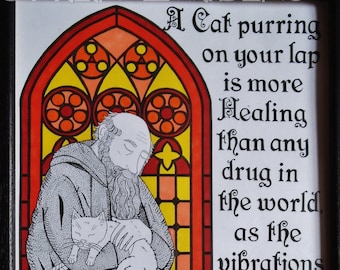 A Cat purring
on your lap
is more
Healing
than any
drug in
the world,
as the
vibrations